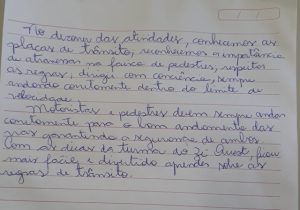 No decorrer das atividades, conhecemos as
placas de trânsito, reconhecemos a importância
de atravessar na faixa de pedestres, respeitar
as regras, dirigir com conciência, sempre
andando corretamente dentro do limite de
velocidade.
Motoristas e pedestres devem sempre andar
corretamente para o bom andamento das
vias garantindo a segurança de ambos.
Com as dicas da turma do Zé Quest, ficou
mais fácil e divertido aprender sobre as
regras de trânsito.